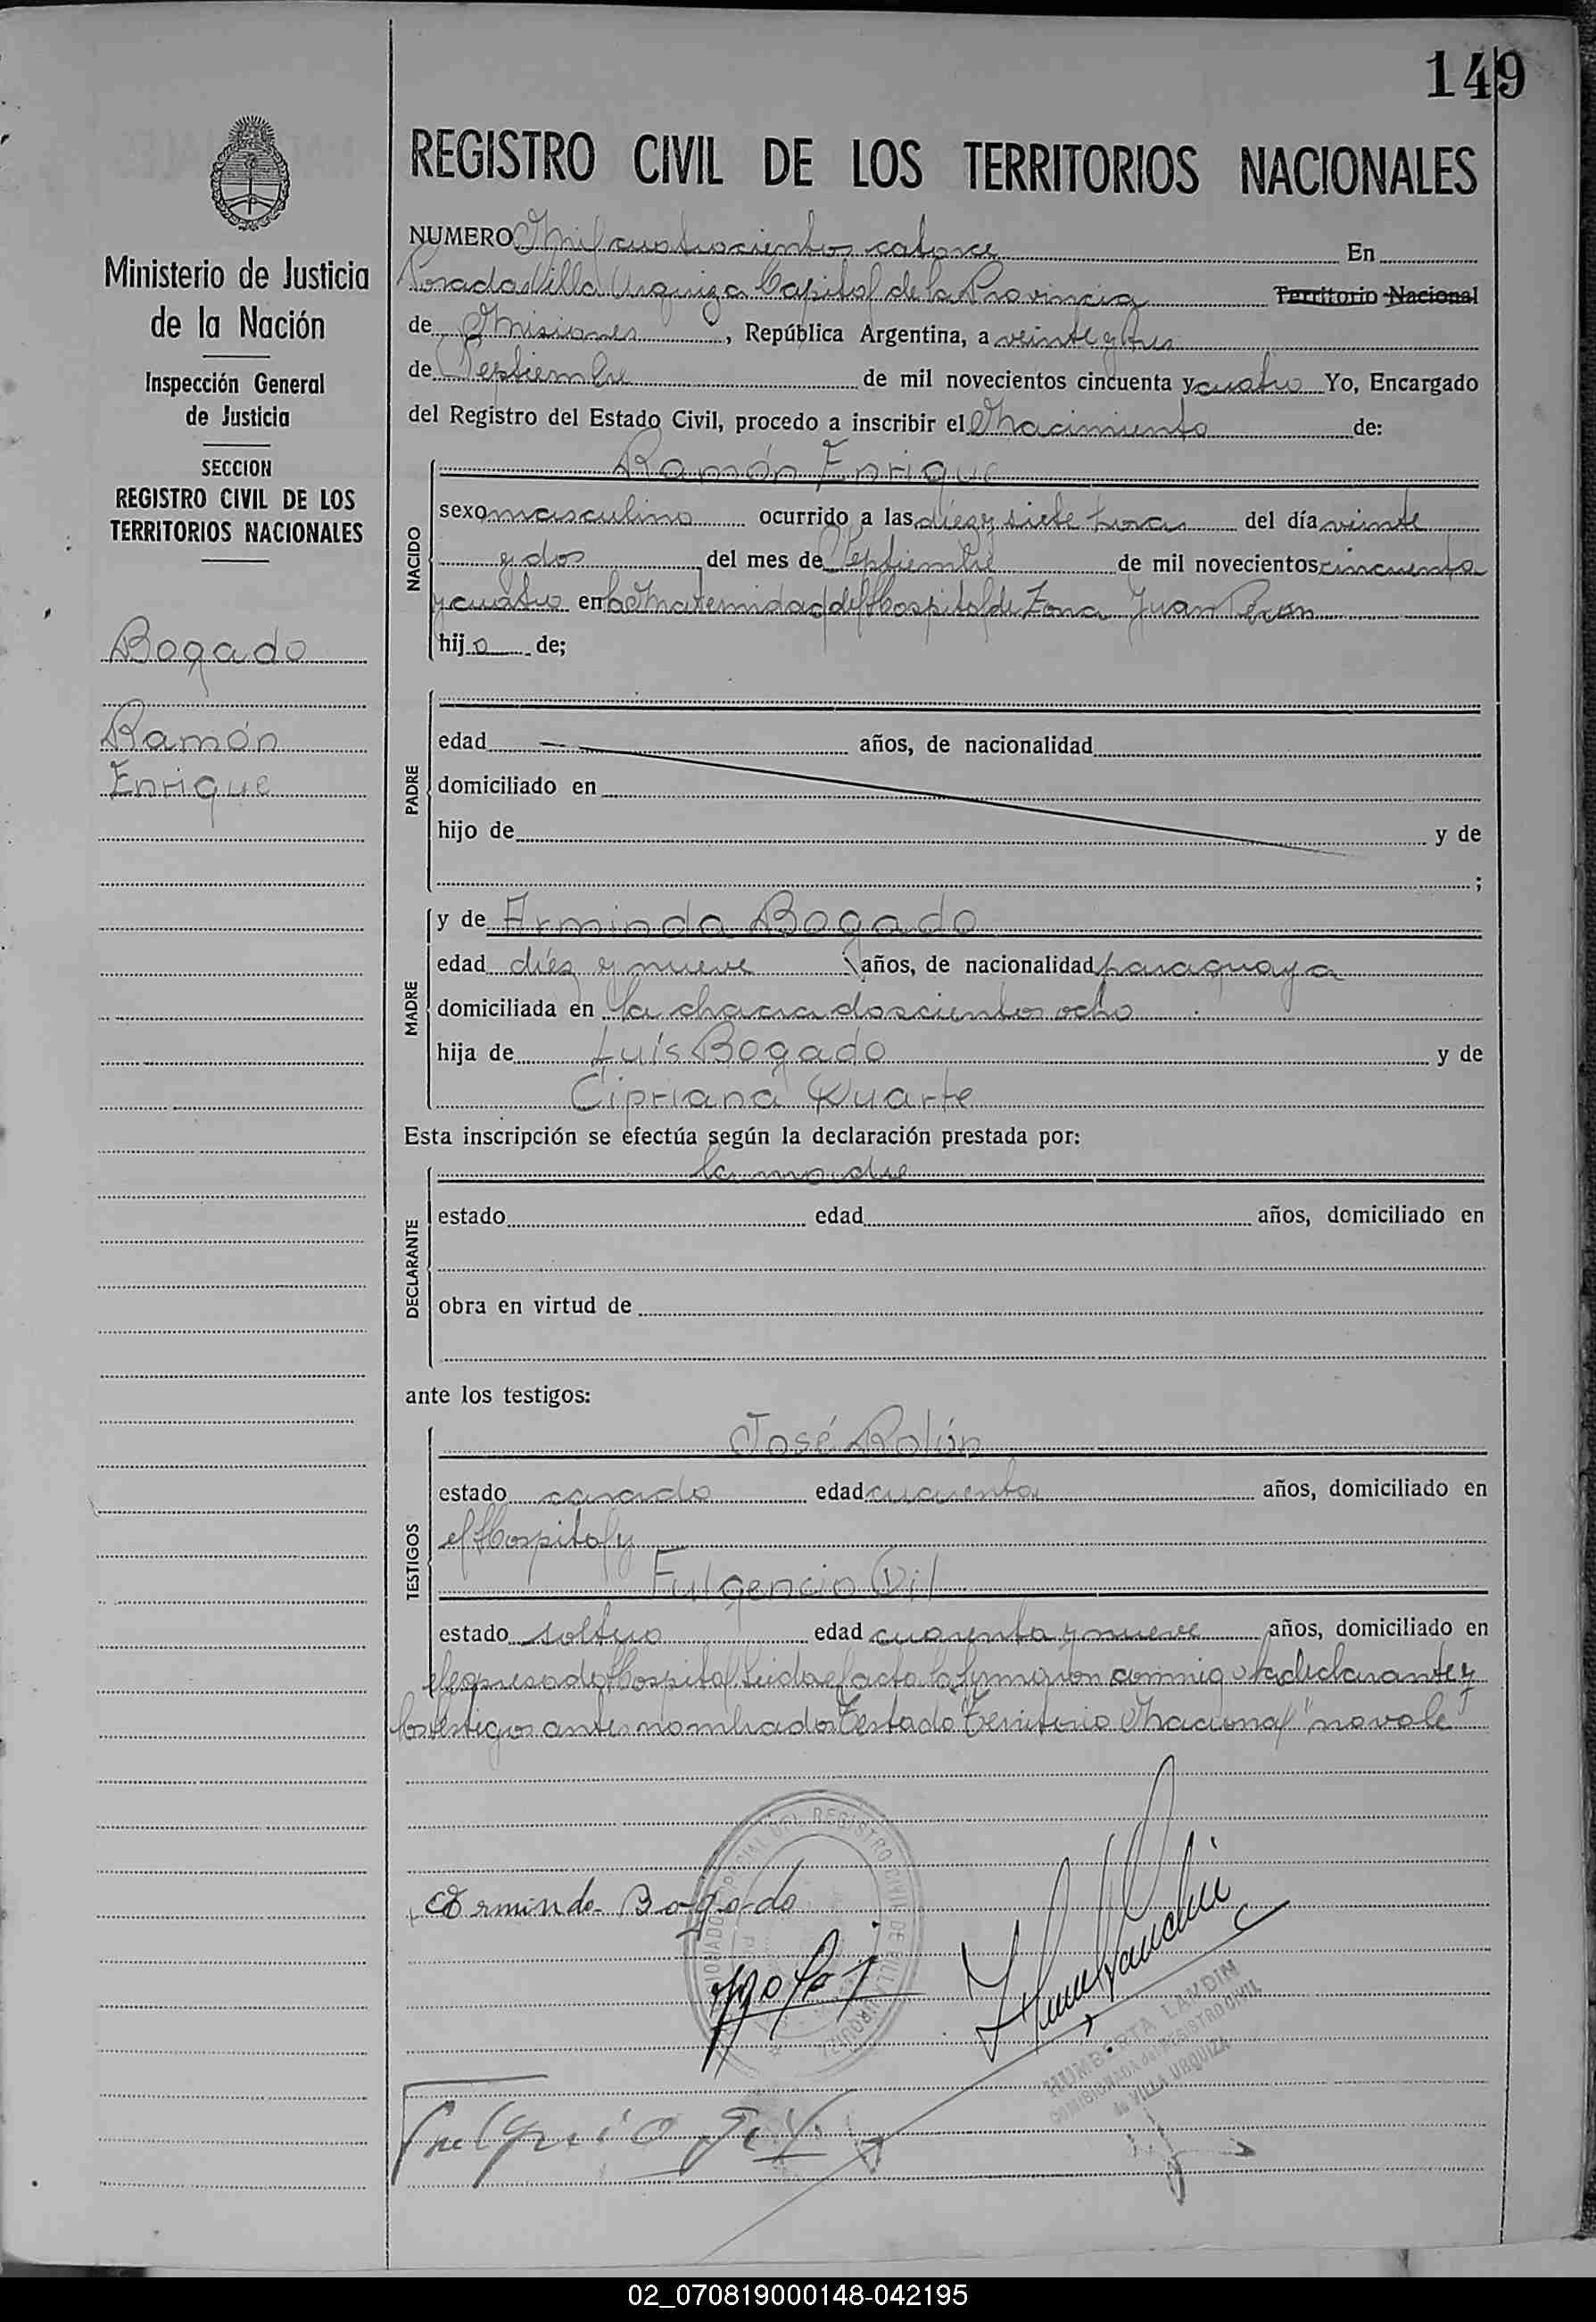 149
REGISTRO CIVIL DE LOS TERRITORIOS NACIONALES
Ministerio de Justicia
de la Nación
Inspección General
de Justicia
SECCION
REGISTRO CIVIL DE LOS
TERRITORIOS NACIONALES
Bogado
Ramón
Enrique
NUMERO Mil cuatrocientos catorce En
Posadas Villa Urquiza Capital de la Provincia Territorio Nacional
de Misiones, República Argentina, a veinte y tres
de Septiembre de mil novecientos cincuenta y cuatro Yo, Encargado
del Registro del Estado Civil, procedo a inscribir el Nacimiento de:
NACIDO
Ramón Enrique
sexo masculino ocurrido a las diez y siete horas del día veinte
y dos del mes de Septiembre de mil novecientos cincuenta
y cuatro en la Maternidad del Hospital de Zona Juan Perón
hijo de;
PADRE
edad años, de nacionalidad
domiciliado en
hijo de y de
;
MADRE
y de Arminda Bogado
edad diez y nueve años, de nacionalidad paraguaya
domiciliada en la chacra doscientos ocho
hija de Luís Bogado y de
Cipriana Duarte
Esta inscripción se efectúa según la declaración prestada por:
DECLARANTE
la madre
estado edad años, domiciliado en
obra en virtud de
ante los testigos:
TESTIGOS
José Rolón
estado casado edad cuarenta años, domiciliado en
el Hospital y
Fulgencio Gil
estado soltero edad cuarenta y nueve años, domiciliado en
el expresado Hospital Leida el acta la firmaron conmigo la declarante y
los testigos antes nombrados Testado "Territorio Nacional" no vale
REGISTRO CIVIL DE VILLA URQUIZA
Arminda Bogado
HUMBERTA LANDIN
COMISIONADA del REGISTRO CIVIL
de VILLA URQUIZA
Fulgencio Gil
02_070819000148-042195